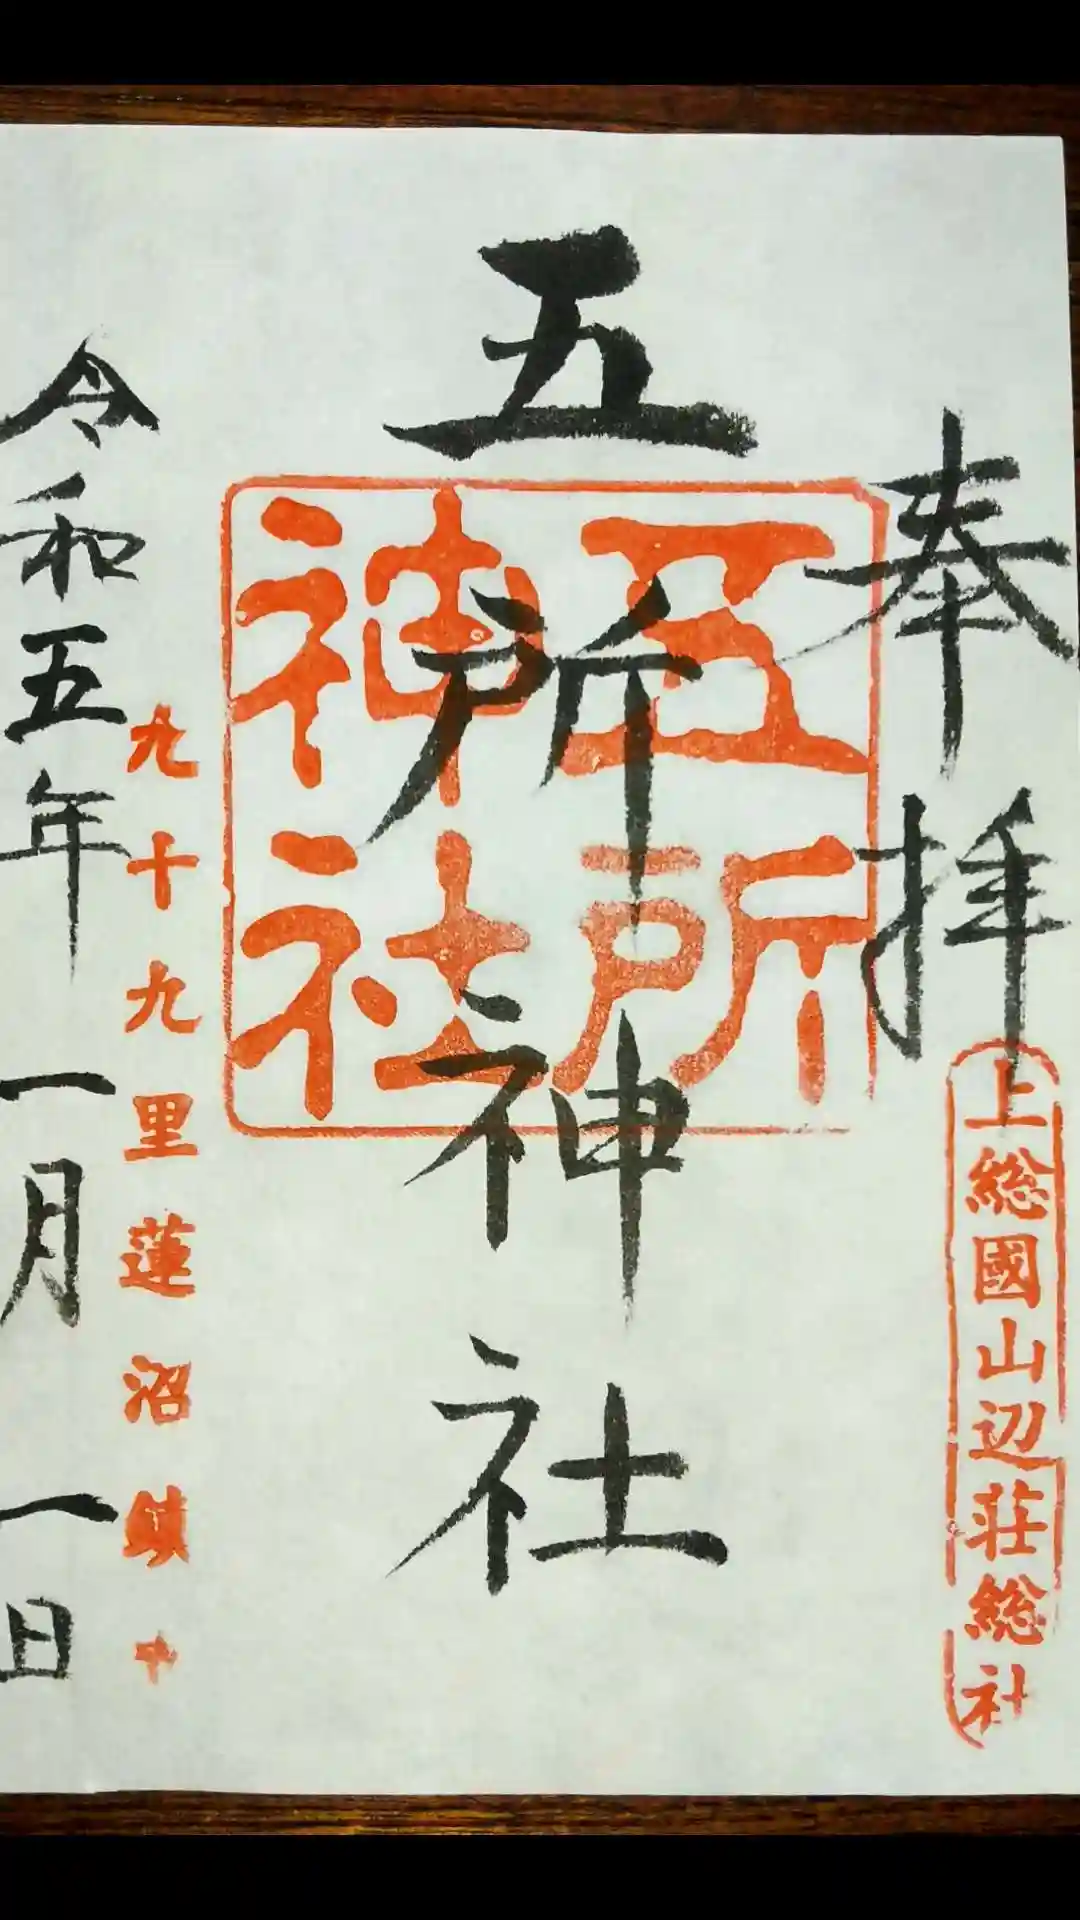 奉拝
上総國山辺荘総社
五所神社
五所
神社
九十九里蓮沼鎮
令和五年一月一日